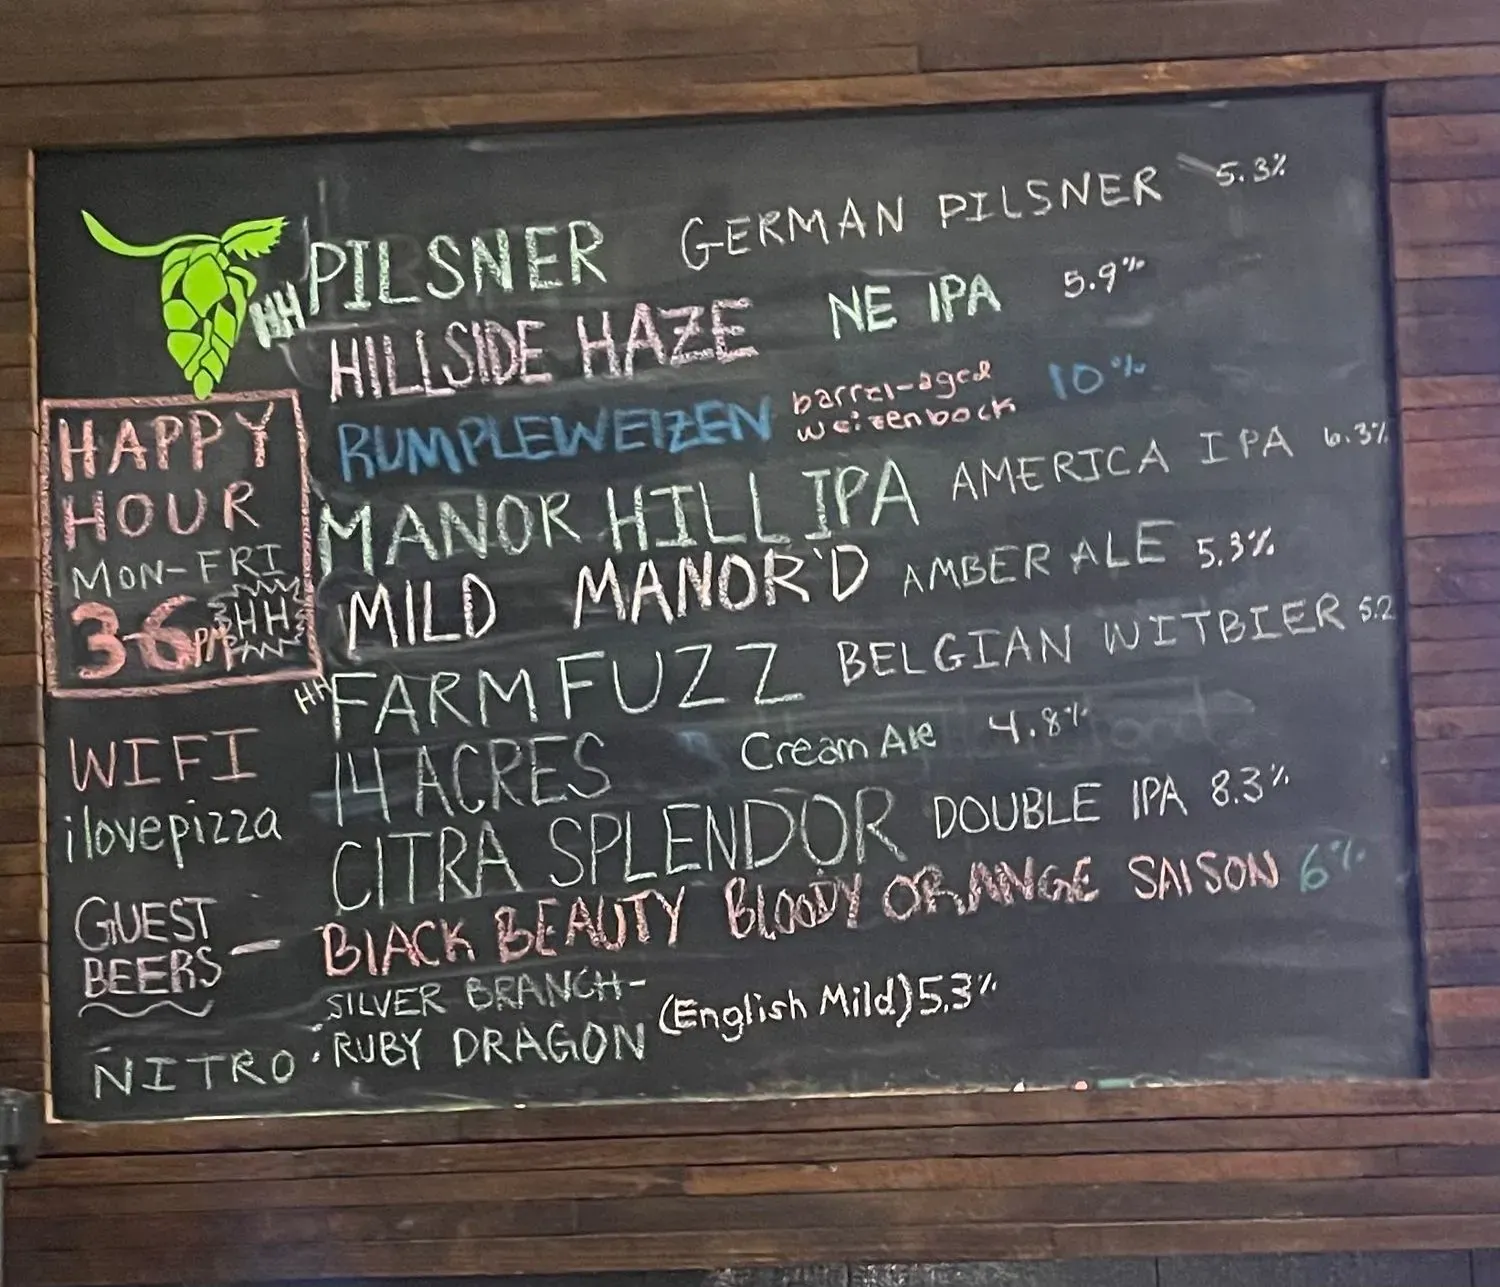 HH PILSNER GERMAN PILSNER 5.3%
HILLSIDE HAZE NE IPA 5.9%
RUMPLEWEIZEN barrel-aged weizenbock 10%
MANOR HILL IPA AMERICA IPA 6.3%
MILD MANOR'D AMBER ALE 5.3%
HH FARM FUZZ BELGIAN WITBIER 5.2
14 ACRES Cream Ale 4.8%
CITRA SPLENDOR DOUBLE IPA 8.3%
HAPPY
HOUR
MON-FRI
3-6PM HH
WIFI
ilovepizza
GUEST
BEERS - BLACK BEAUTY BLOODY ORANGE SAISON 6%
SILVER BRANCH-
NITRO: RUBY DRAGON (English Mild) 5.3%